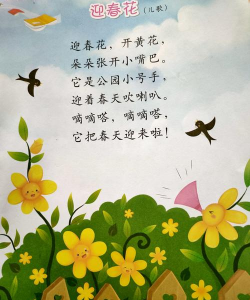 迎春花（儿歌）
迎春花，开黄花，
朵朵张开小嘴巴。
它是公园小号手，
迎着春天吹喇叭。
嘀嘀嗒，嘀嘀嗒，
它把春天迎来啦！